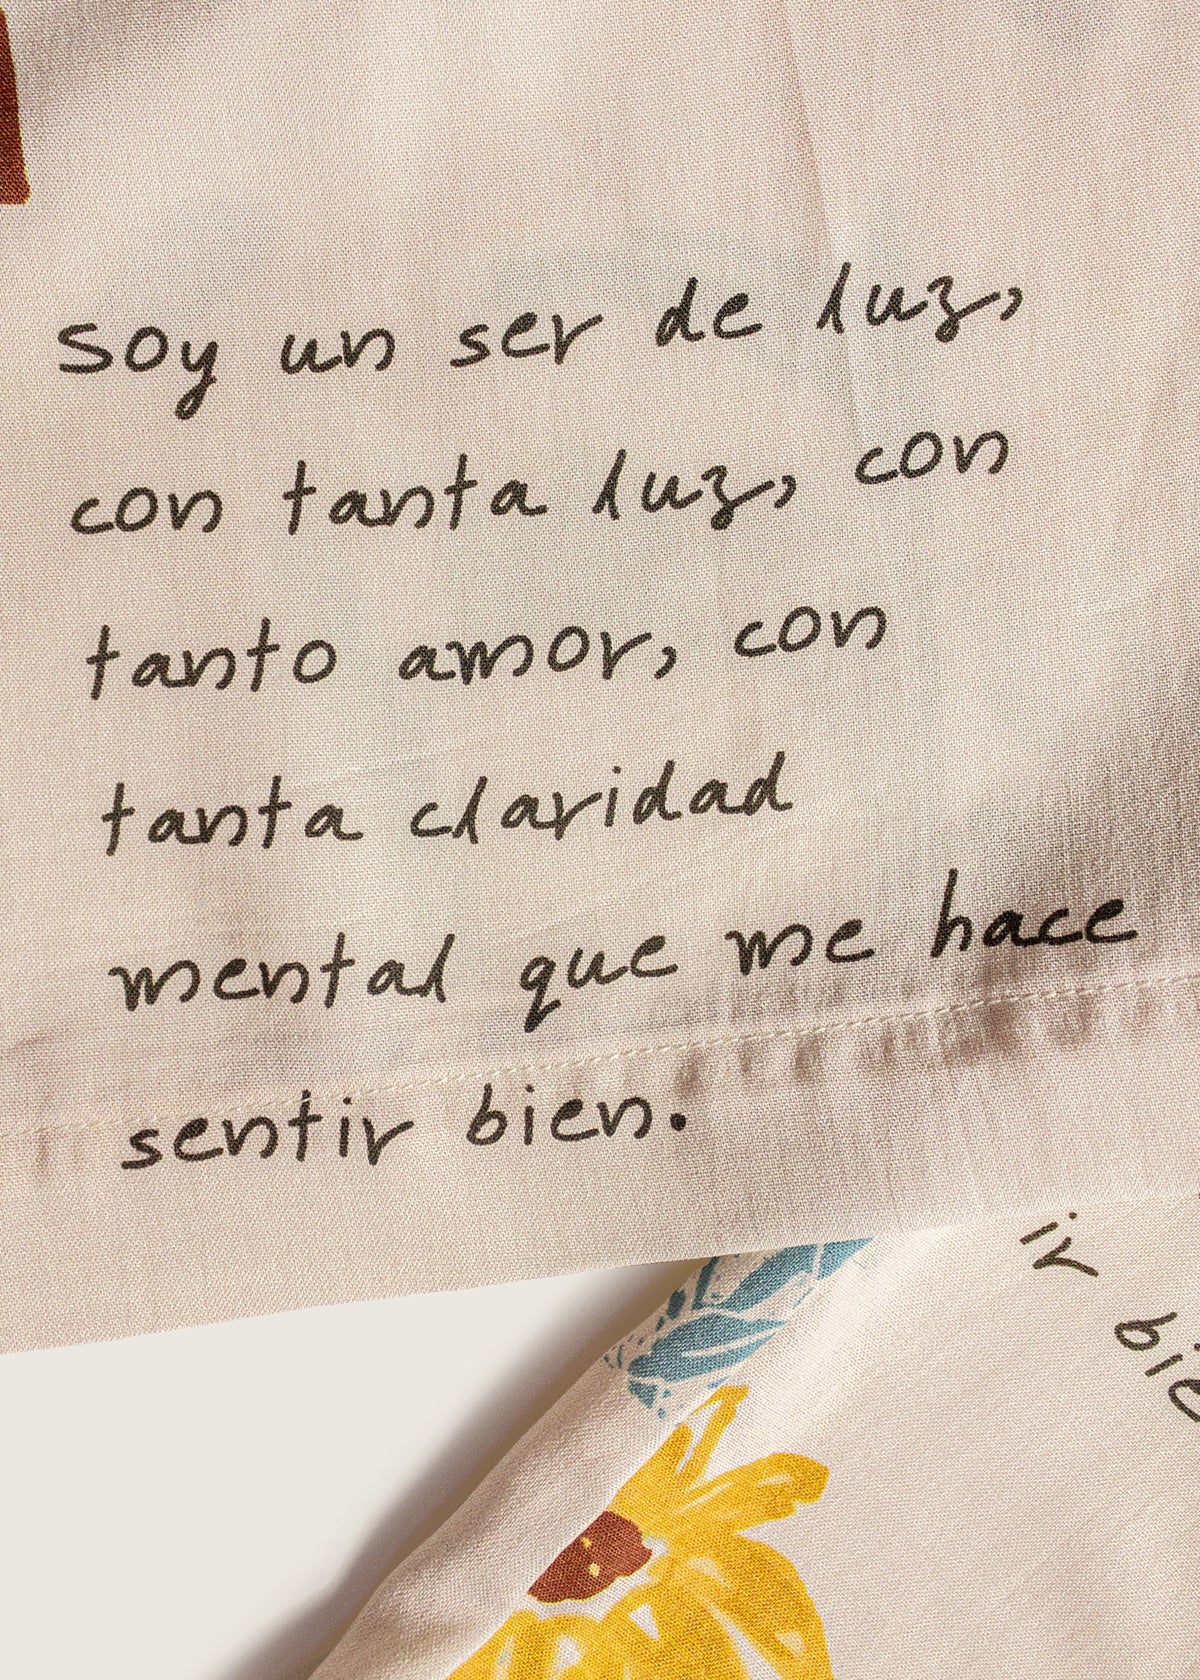 soy un ser de luz,
con tanta luz, con
tanto amor, con
tanta claridad
mental que me hace
sentir bien.
ir
bie